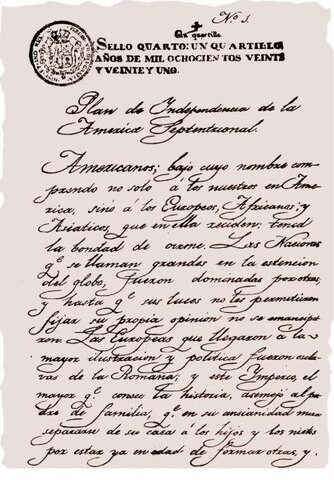 Nº 1.
Un quartillo
SELLO QUARTO: UN QUARTILLO
AÑOS DE MIL OCHOCIENTOS VEINTE
Y VEINTE Y UNO.
Plan de Independencia de la
America Septentrional.
Americanos; bajo cuyo nombre com-
prendo no solo á los nuestros en Ame-
rica, sinó á los Europeos, Africanos; y
Asiaticos, que en ella reciden; tened
la bondad de oirme. Las Naciones
q.e se llaman grandes en la extencion
del globo, fueron dominadas por otras,
y hasta q.e sus luces no les permitieron
fijar su propia opinion no se emancipa-
ron. Las Europeas que llegaron á la
mayor ilustracion y politica fueron escla-
vas de la Romana; y este Imperio, el
mayor q.e conoce la historia, asemejó al pa-
dre de familia, q.e en su ancianidad mira
separarse de su casa á los hijos y los nietos
por estar ya en edad de formar otras, y